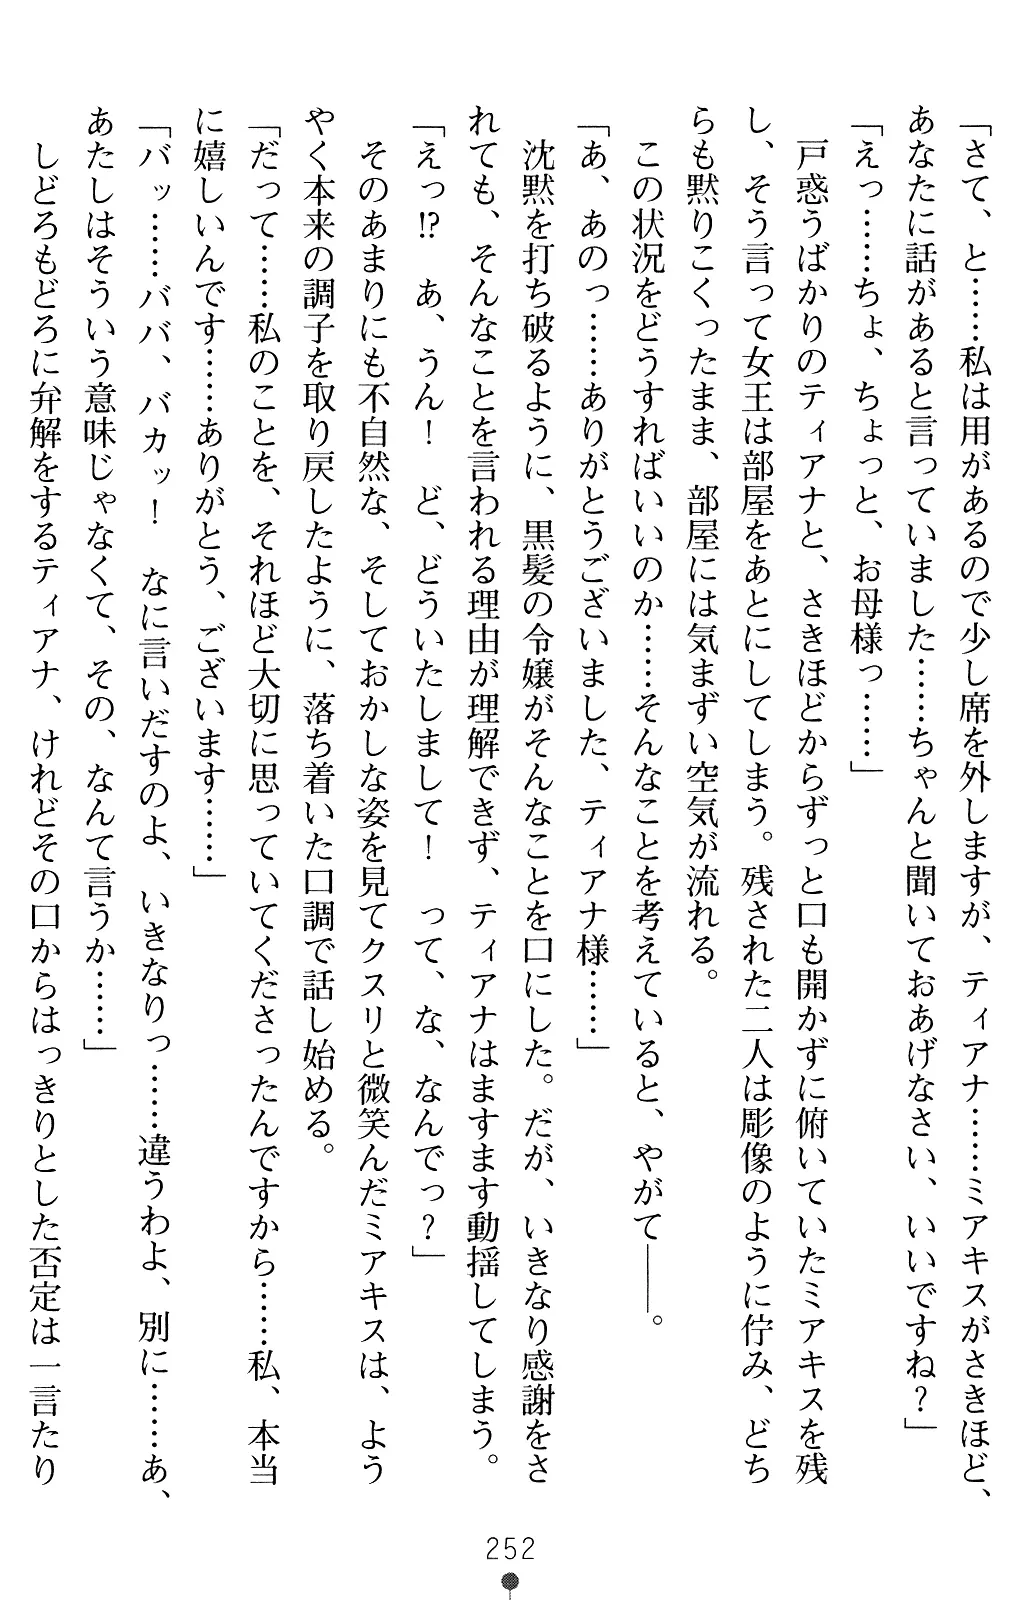 「さて、と……私は用があるので少し席を外しますが、ティアナ……ミアキスがさきほど、
あなたに話があると言っていました……ちゃんと聞いておあげなさい、いいですね？」
「えっ……ちょ、ちょっと、お母様っ……」
　戸惑うばかりのティアナと、さきほどからずっと口も開かずに俯いていたミアキスを残
し、そう言って女王は部屋をあとにしてしまう。残された二人は彫像のように佇み、どち
らも黙りこくったまま、部屋には気まずい空気が流れる。
　この状況をどうすればいいのか……そんなことを考えていると、やがて――。
「あ、あのっ……ありがとうございました、ティアナ様……」
　沈黙を打ち破るように、黒髪の令嬢がそんなことを口にした。だが、いきなり感謝をさ
れても、そんなことを言われる理由が理解できず、ティアナはますます動揺してしまう。
「えっ!?　あ、うん！　ど、どういたしまして！　って、な、なんでっ？」
　そのあまりにも不自然な、そしておかしな姿を見てクスリと微笑んだミアキスは、よう
やく本来の調子を取り戻したように、落ち着いた口調で話し始める。
「だって……私のことを、それほど大切に思っていてくださったんですから……私、本当
に嬉しいんです……ありがとう、ございます……」
「バッ……ババ、バカッ！　なに言いだすのよ、いきなりっ……違うわよ、別に……あ、
あたしはそういう意味じゃなくて、その、なんて言うか……」
　しどろもどろに弁解をするティアナ、けれどその口からはっきりとした否定は一言たり
252